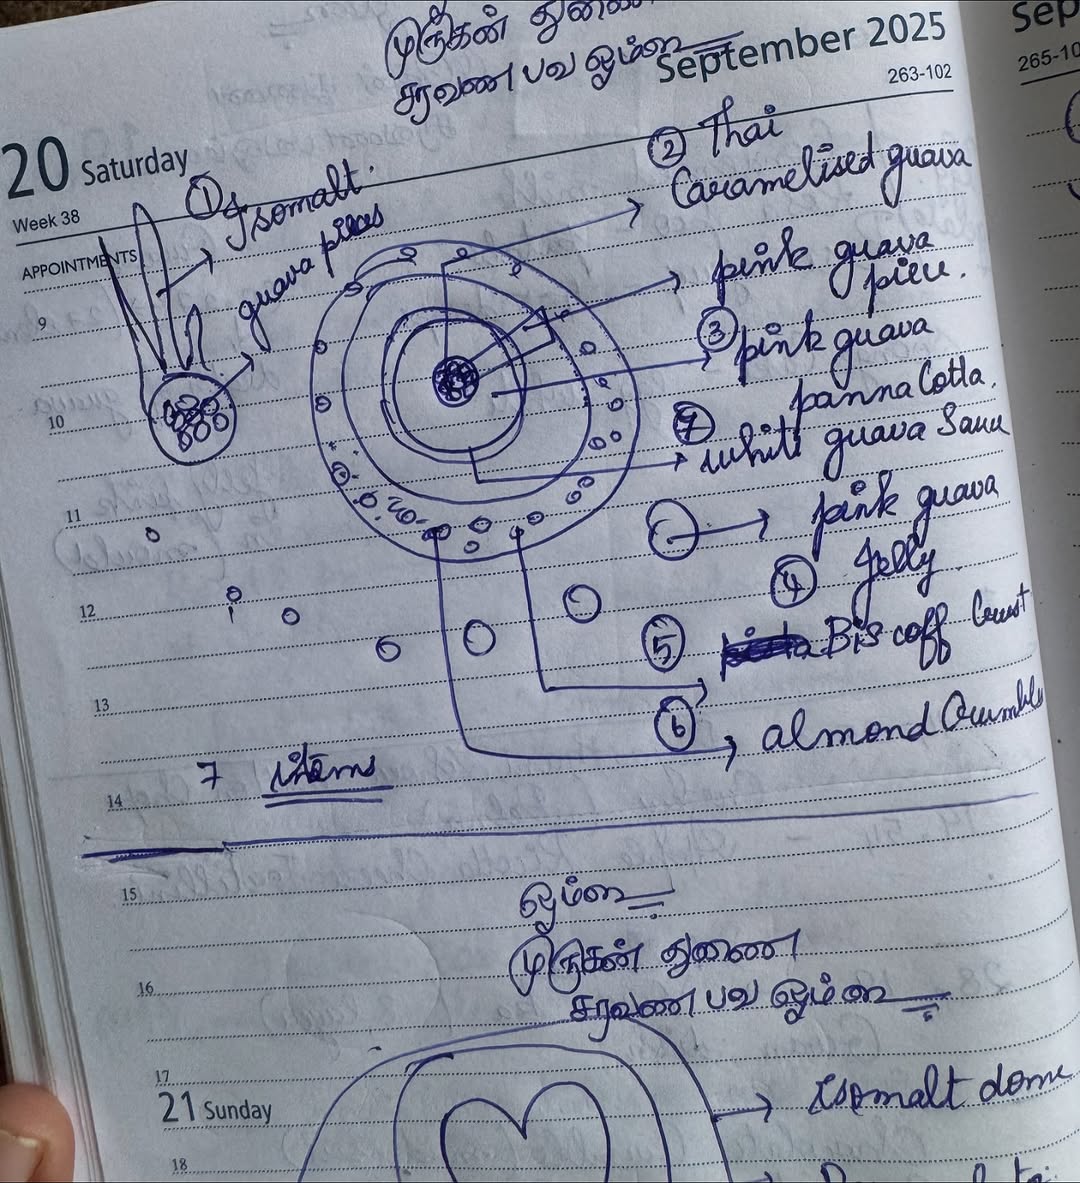 முருகன் துணை
சரவண பவ ஓம்
September 2025
Sep
263-102
265-10
20 Saturday
Week 38
APPOINTMENTS
① Isomalt.
guava pieces
② Thai
Caramelised guava
pink guava
③ pink guava
panna Cotta.
⑦ white guava Sauce
pink guava
④ Jelly.
⑤ Biscoff Crust
⑥ almond Crumble
7 items
9
10
11
12
13
14
15
ஓம்
முருகன் துணை
சரவண பவ ஓம்
16
17
21 Sunday
Isomalt dome
18